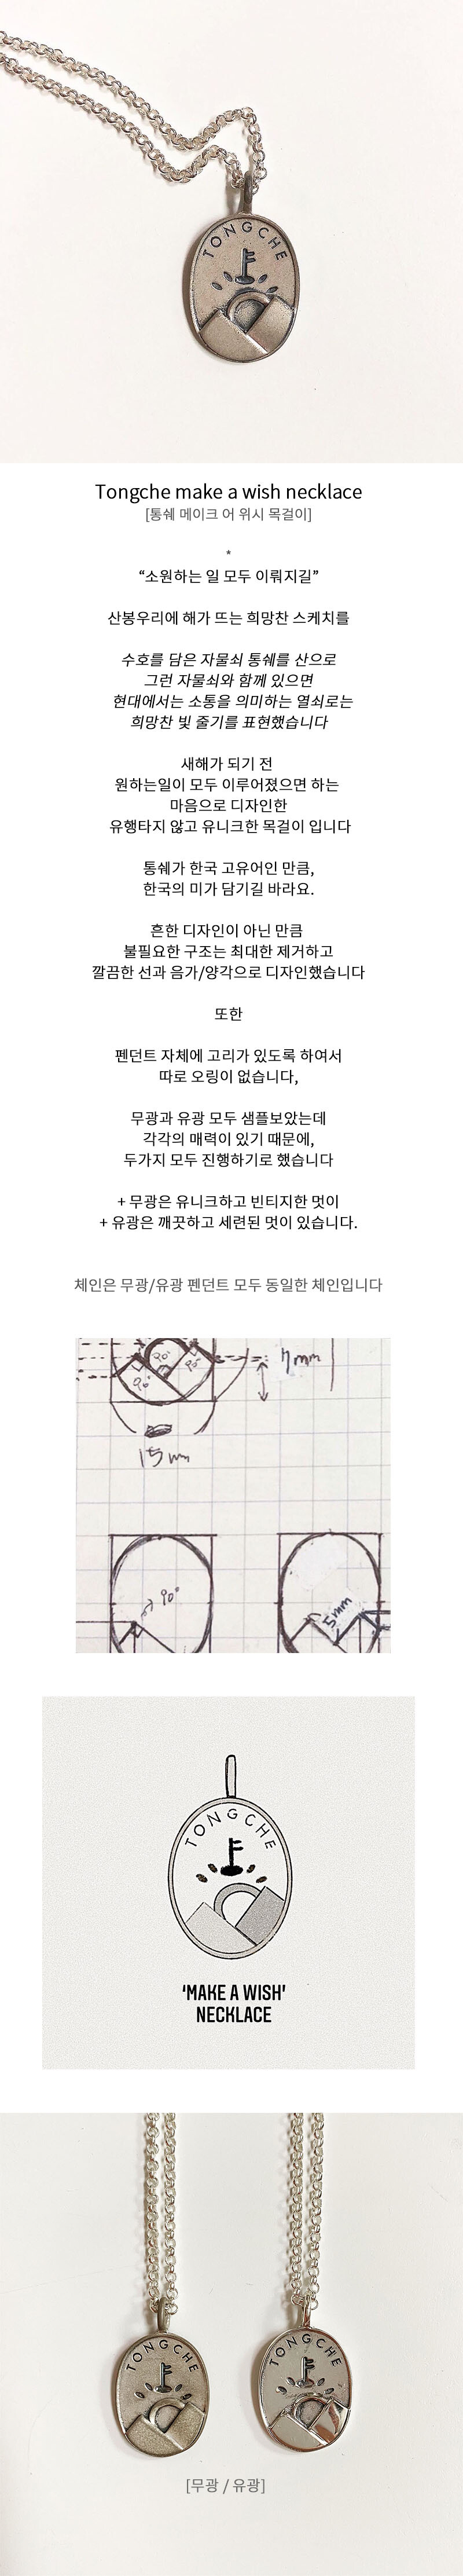 TONGCHE
Tongche make a wish necklace
[통쉐 메이크 어 위시 목걸이]
*
“소원하는 일 모두 이뤄지길”
산봉우리에 해가 뜨는 희망찬 스케치를
수호를 담은 자물쇠 통쉐를 산으로
그런 자물쇠와 함께 있으면
현대에서는 소통을 의미하는 열쇠로는
희망찬 빛 줄기를 표현했습니다
새해가 되기 전
원하는일이 모두 이루어졌으면 하는
마음으로 디자인한
유행타지 않고 유니크한 목걸이 입니다
통쉐가 한국 고유어인 만큼,
한국의 미가 담기길 바라요.
흔한 디자인이 아닌 만큼
불필요한 구조는 최대한 제거하고
깔끔한 선과 음가/양각으로 디자인했습니다
또한
펜던트 자체에 고리가 있도록 하여서
따로 오링이 없습니다,
무광과 유광 모두 샘플보았는데
각각의 매력이 있기 때문에,
두가지 모두 진행하기로 했습니다
+ 무광은 유니크하고 빈티지한 멋이
+ 유광은 깨끗하고 세련된 멋이 있습니다.
체인은 무광/유광 펜던트 모두 동일한 체인입니다
90°
90°
90°
7mm
15m
90°
5mm
TONGCHE
‘MAKE A WISH’
NECKLACE
TONGCHE
TONGCHE
[무광 / 유광]